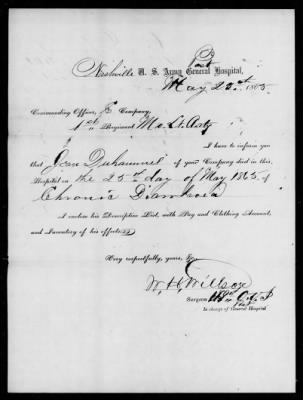 Post
Nashville U. S. Army General Hospital,
May 25th 1865.
Commanding Officer, E Company,
1st Regiment Mo. Lt. Arty
I have to inform you
that Jean Duhammel of your Company died in this
Hospital on the 25th day of May 1865 of
Chronic Diarrhoea
I enclose his Descriptive List, with Pay and Clothing Account,
and Inventory of his effects.
Very respectfully, yours,
W. H.
Surgeon
In charge of General Hospital